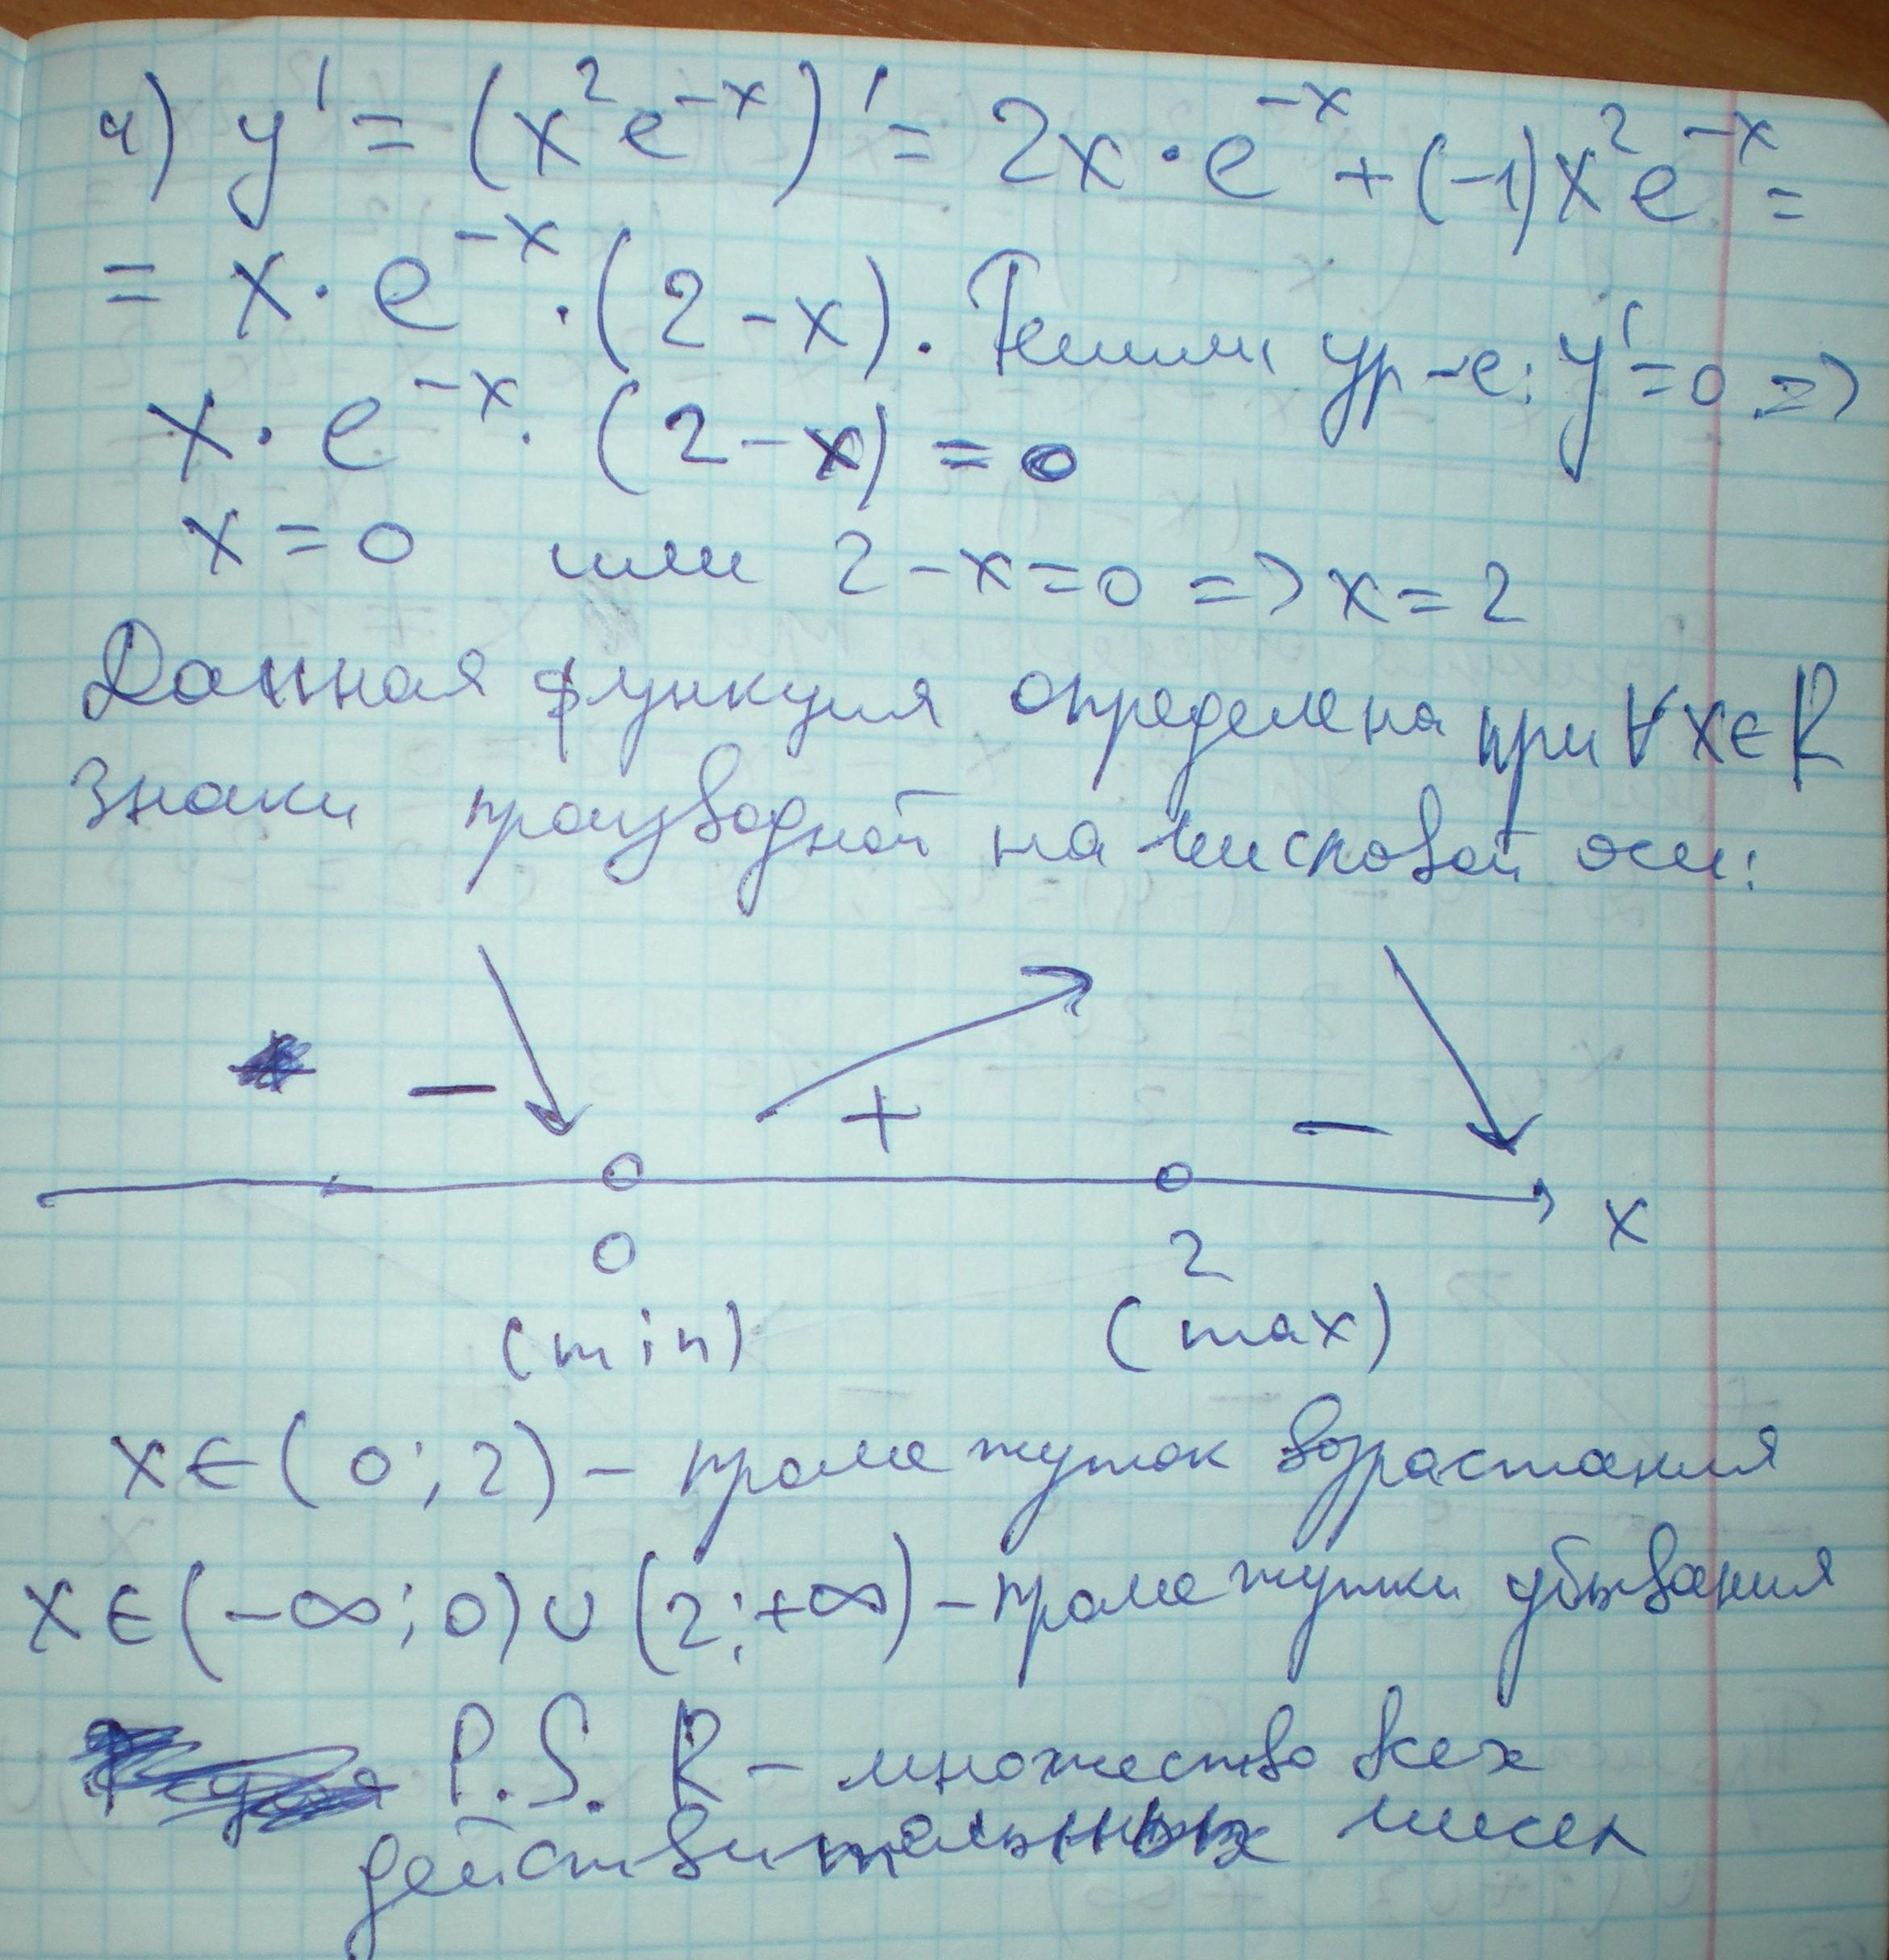 ч) y' = (x²e⁻ˣ)' = 2x·e⁻ˣ + (-1)x²e⁻ˣ =
= x·e⁻ˣ·(2-x). Решим ур-е: y'=0 =>
x·e⁻ˣ·(2-x) = 0
x=0 или 2-x=0 => x=2
Данная функция определена при ∀x∈R
Знаки производной на числовой оси:
− + −
x
0 2
(min) (max)
x∈(0;2) – промежуток возрастания
x∈(-∞;0)∪(2;+∞) – промежутки убывания
P.S. R – множество всех
действительных чисел